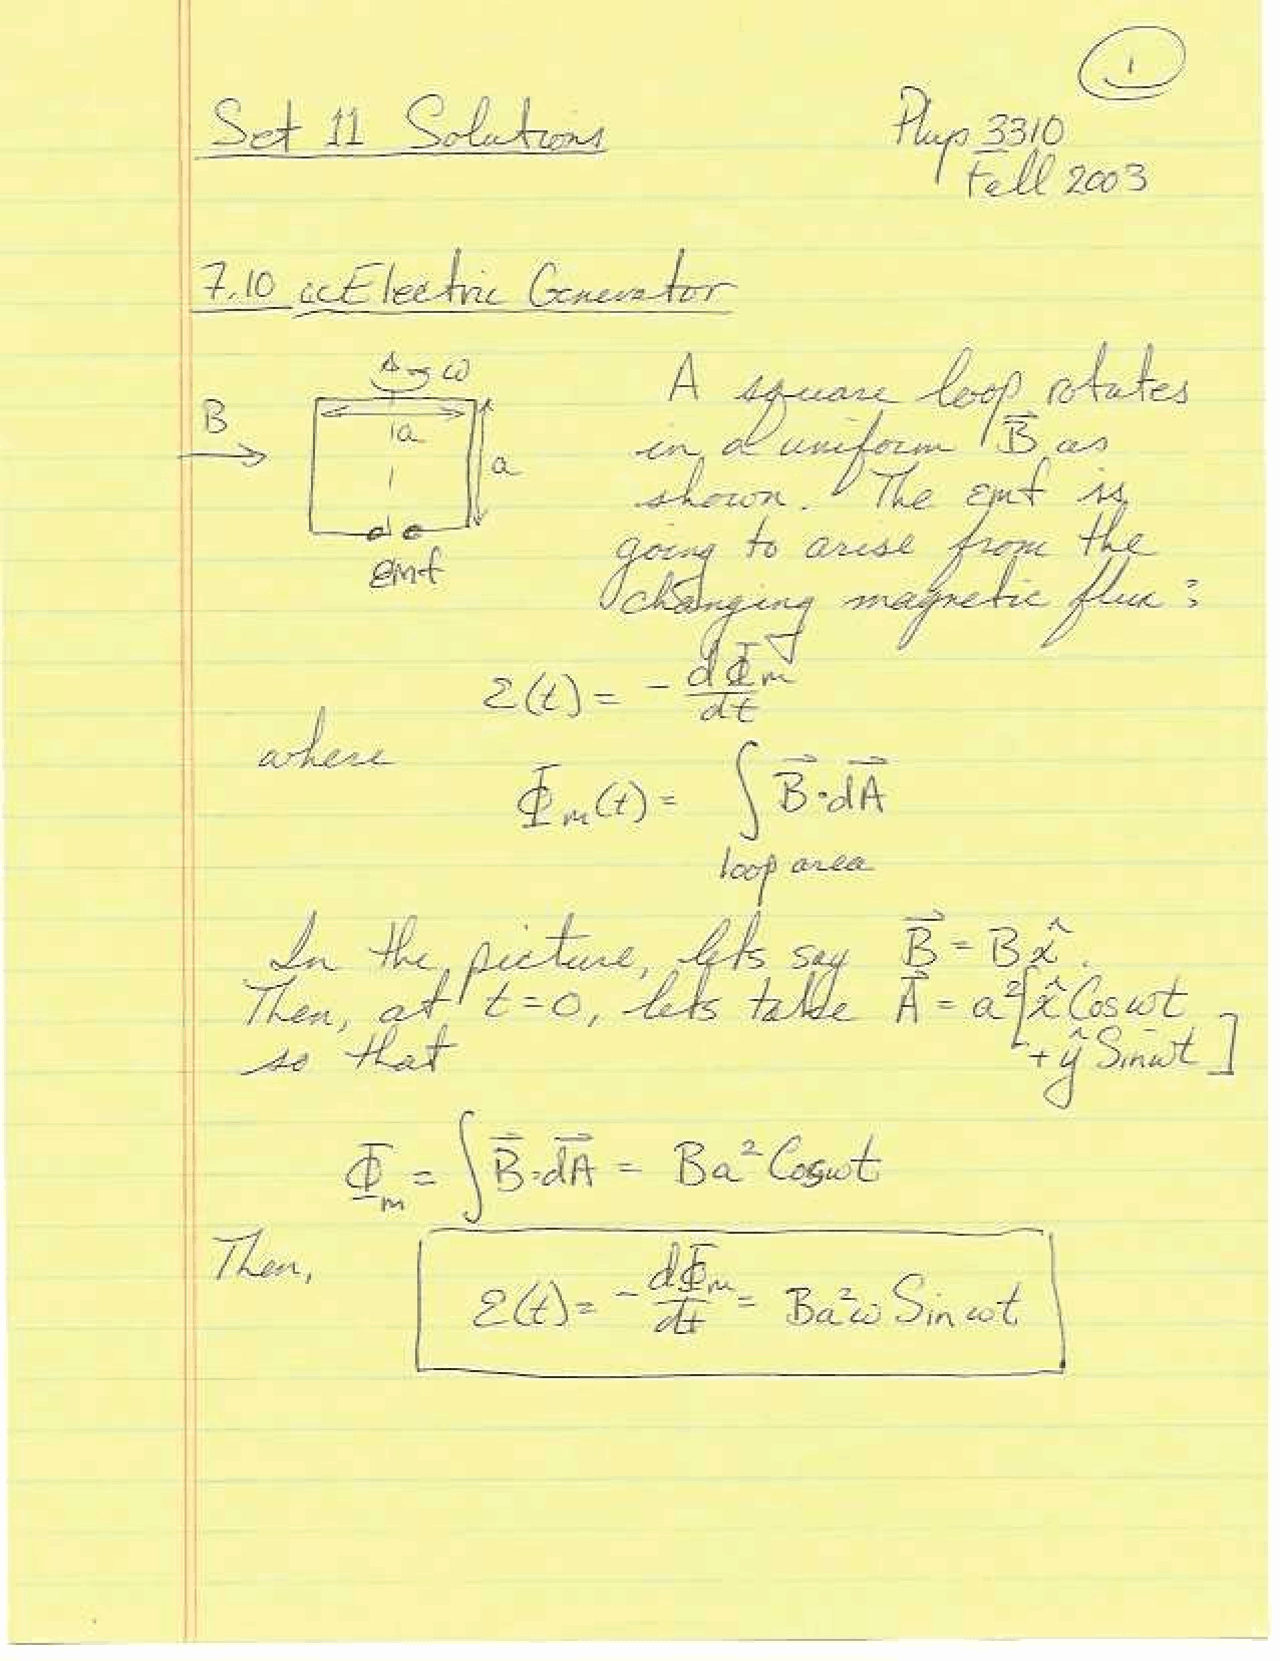 1
Set 11 Solutions
Phys 3310
Fall 2003
7.10 ac Electric Generator
ω
B
a
a
emf
A square loop rotates
in a uniform B⃗ as
shown. The emf is
going to arise from the
changing magnetic flux:
Ɛ(t) = - dΦm/dt
where
Φm(t) = ∫ B⃗·dA⃗
loop area
In the picture, lets say B⃗ = Bx̂.
Then, at t=0, lets take A⃗ = a²[x̂ Cosωt
so that + ŷ Sinωt]
Φm = ∫ B⃗·dA⃗ = Ba² Cosωt
Then,
Ɛ(t) = - dΦm/dt = Ba²ω Sin ωt